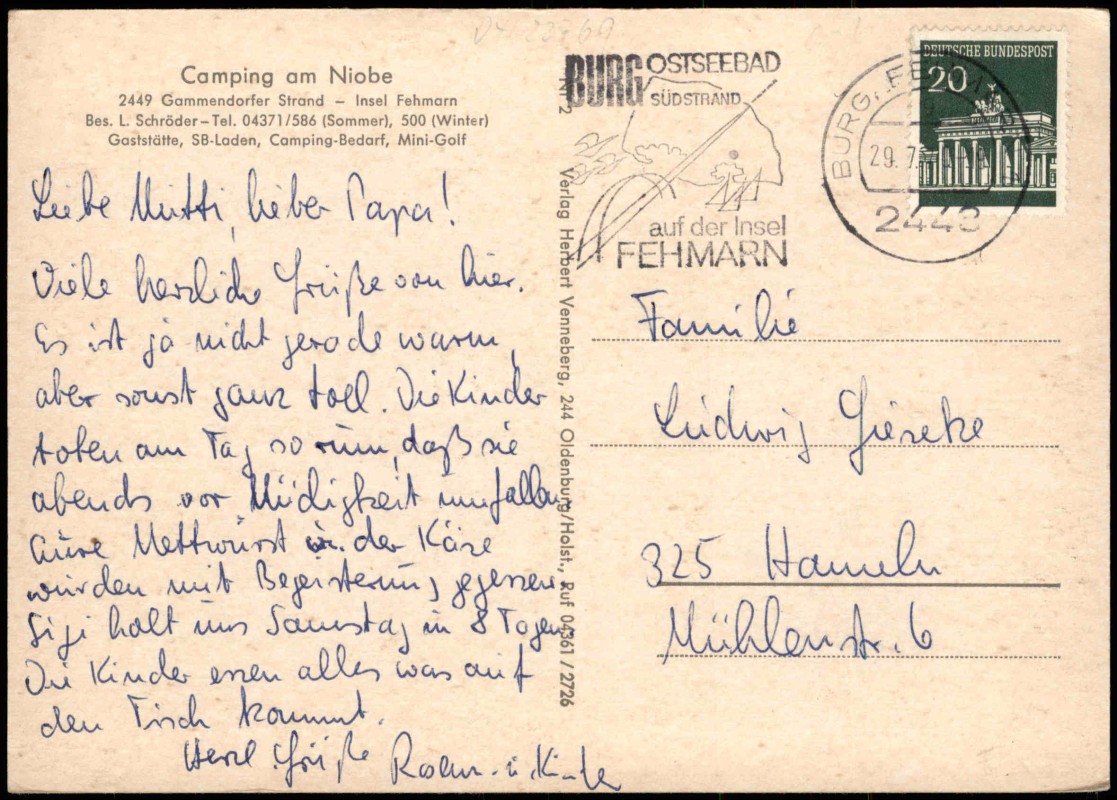 Camping am Niobe
2449 Gammendorfer Strand – Insel Fehmarn
Bes. L. Schröder – Tel. 04371/586 (Sommer), 500 (Winter)
Gaststätte, SB-Laden, Camping-Bedarf, Mini-Golf
Liebe Mutti, lieber Papa!
Viele herzliche Grüße von hier.
Es ist ja nicht gerade warm,
aber sonst ganz toll. Die Kinder
toben am Tag so rum, daß sie
abends vor Müdigkeit umfallen.
Eure Mettwurst u. der Käse
wurden mit Begeisterung gegessen.
Gigi holt uns Samstag in 8 Tagen.
Die Kinder essen alles was auf
den Tisch kommt.
Herzl. Grüße
u. Kinder
Verlag Herbert Venneberg, 244 Oldenburg/Holst., Ruf 04361/2726
BURG OSTSEEBAD
SÜDSTRAND
auf der Insel
FEHMARN
BURG, FEHMARN
29.7.
2448
DEUTSCHE BUNDESPOST
20
Familie
Ludwig Giesecke
325 Hameln
Mühlenstr. 6